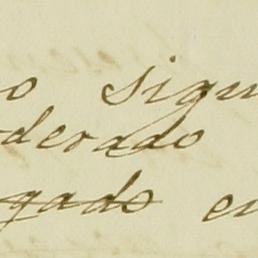 o sigu
derado
gado en